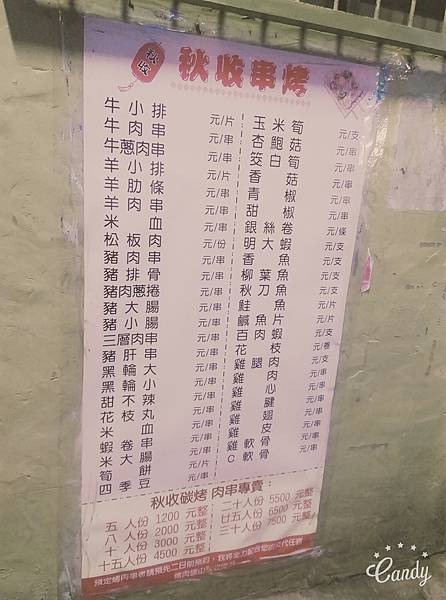 秋收
秋收串烤
牛小排 元/片
牛肉串 元/串
牛蔥肉串 元/串
羊小排 元/片
羊肋條 元/串
羊肉串 元/串
米血 元/串
松板肉 元/份
豬肉串 元/串
豬排骨 元/串
豬肉蔥捲 元/串
豬大腸 元/串
豬小腸 元/串
三層肉串 元/串
甜不辣 元/串
花枝丸 元/串
米血 元/串
蝦卷串 元/串
米大腸 元/串
四季豆 元/串
玉米筍 元/支
杏鮑菇 元/串
筊白筍 元/支
香菇 元/串
青椒 元/串
甜椒 元/串
銀絲卷 元/條
明蝦 元/支
香魚 元/支
柳葉魚 元/支
秋刀魚 元/支
鮭魚片 元/片
花枝 元/支
雞腿肉 元/串
雞肉 元/串
雞心 元/串
雞腱 元/串
雞翅 元/串
雞皮 元/串
雞軟骨 元/串
C軟骨 元/串
秋收碳烤 肉串專賣:
五人份 1200 元整
八人份 2000 元整
十人份 3000 元整
十五人份 4500 元整
二十人份 5500 元整
廿五人份 6500 元整
三十人份 7500 元整
預定烤肉串者請預先二日前預約,我將全力配合您的交代任務
Candy